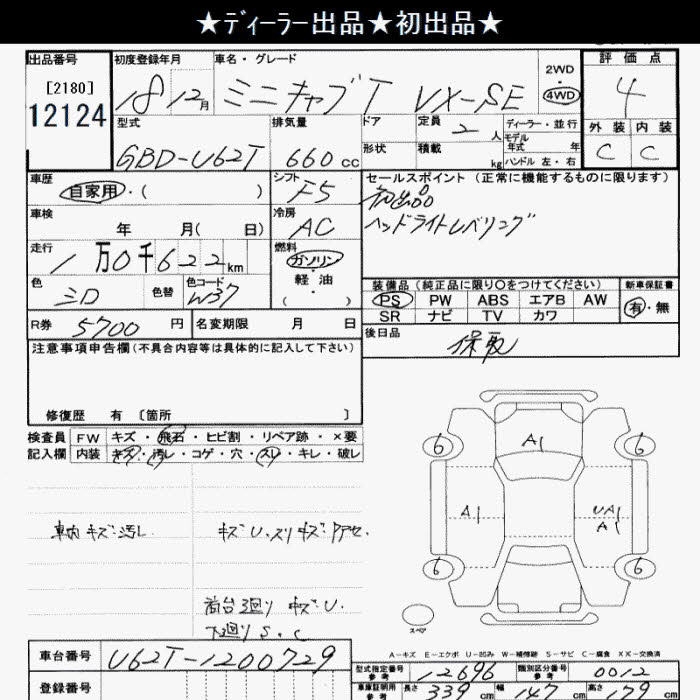 ★ディーラー出品★初出品★
出品番号 初度登録年月 車名・グレード 2WD・4WD 評価点
[2180] 12124 18 12月 ミニキャブT VX-SE 4
型式 排気量 ドア 定員 2人 ディーラー・並行 外装 内装
モデル年式 年
GBD-U62T 660cc 形状 積載 kg ハンドル 左・右 C C
車歴 シフト セールスポイント (正常に機能するものに限ります)
自家用・( ) F5 初出品
車検 冷房 ヘッドライトレベリング
年 月( 日) AC
走行 燃料
1万0千622km ガソリン・軽油・( )
色 色替 色コード 装備品 (純正品に限り○をつけてください) 新車保証書
三D W37 PS PW ABS エアB AW 有・無
SR ナビ TV カワ
R券 5700円 名変期限 月 日 後日品
保取
注意事項申告欄 (不具合内容等は具体的に記入して下さい)
修復歴 有 [箇所 ]
検査員 FW キズ・飛石・ヒビ割・リペア跡・×要
記入欄 内装 キズ・汚レ・コゲ・穴・スレ・キレ・破レ
6 A1 6
A1 UA1
A1
車内キズ汚レ キズU.スリキズ.Pアセ.
6 6
荷台廻り キズU.
下廻りS.C
スペア
A-キズ E-エクボ U-凹み W-補修跡 S-サビ C-腐食 XX-交換済
車台番号 U62T-1200729
型式指定番号 参考 12696 類別区分番号 参考 0012
登録番号 車庫証明用 参考 長さ 339cm 幅 147cm 高さ 179cm